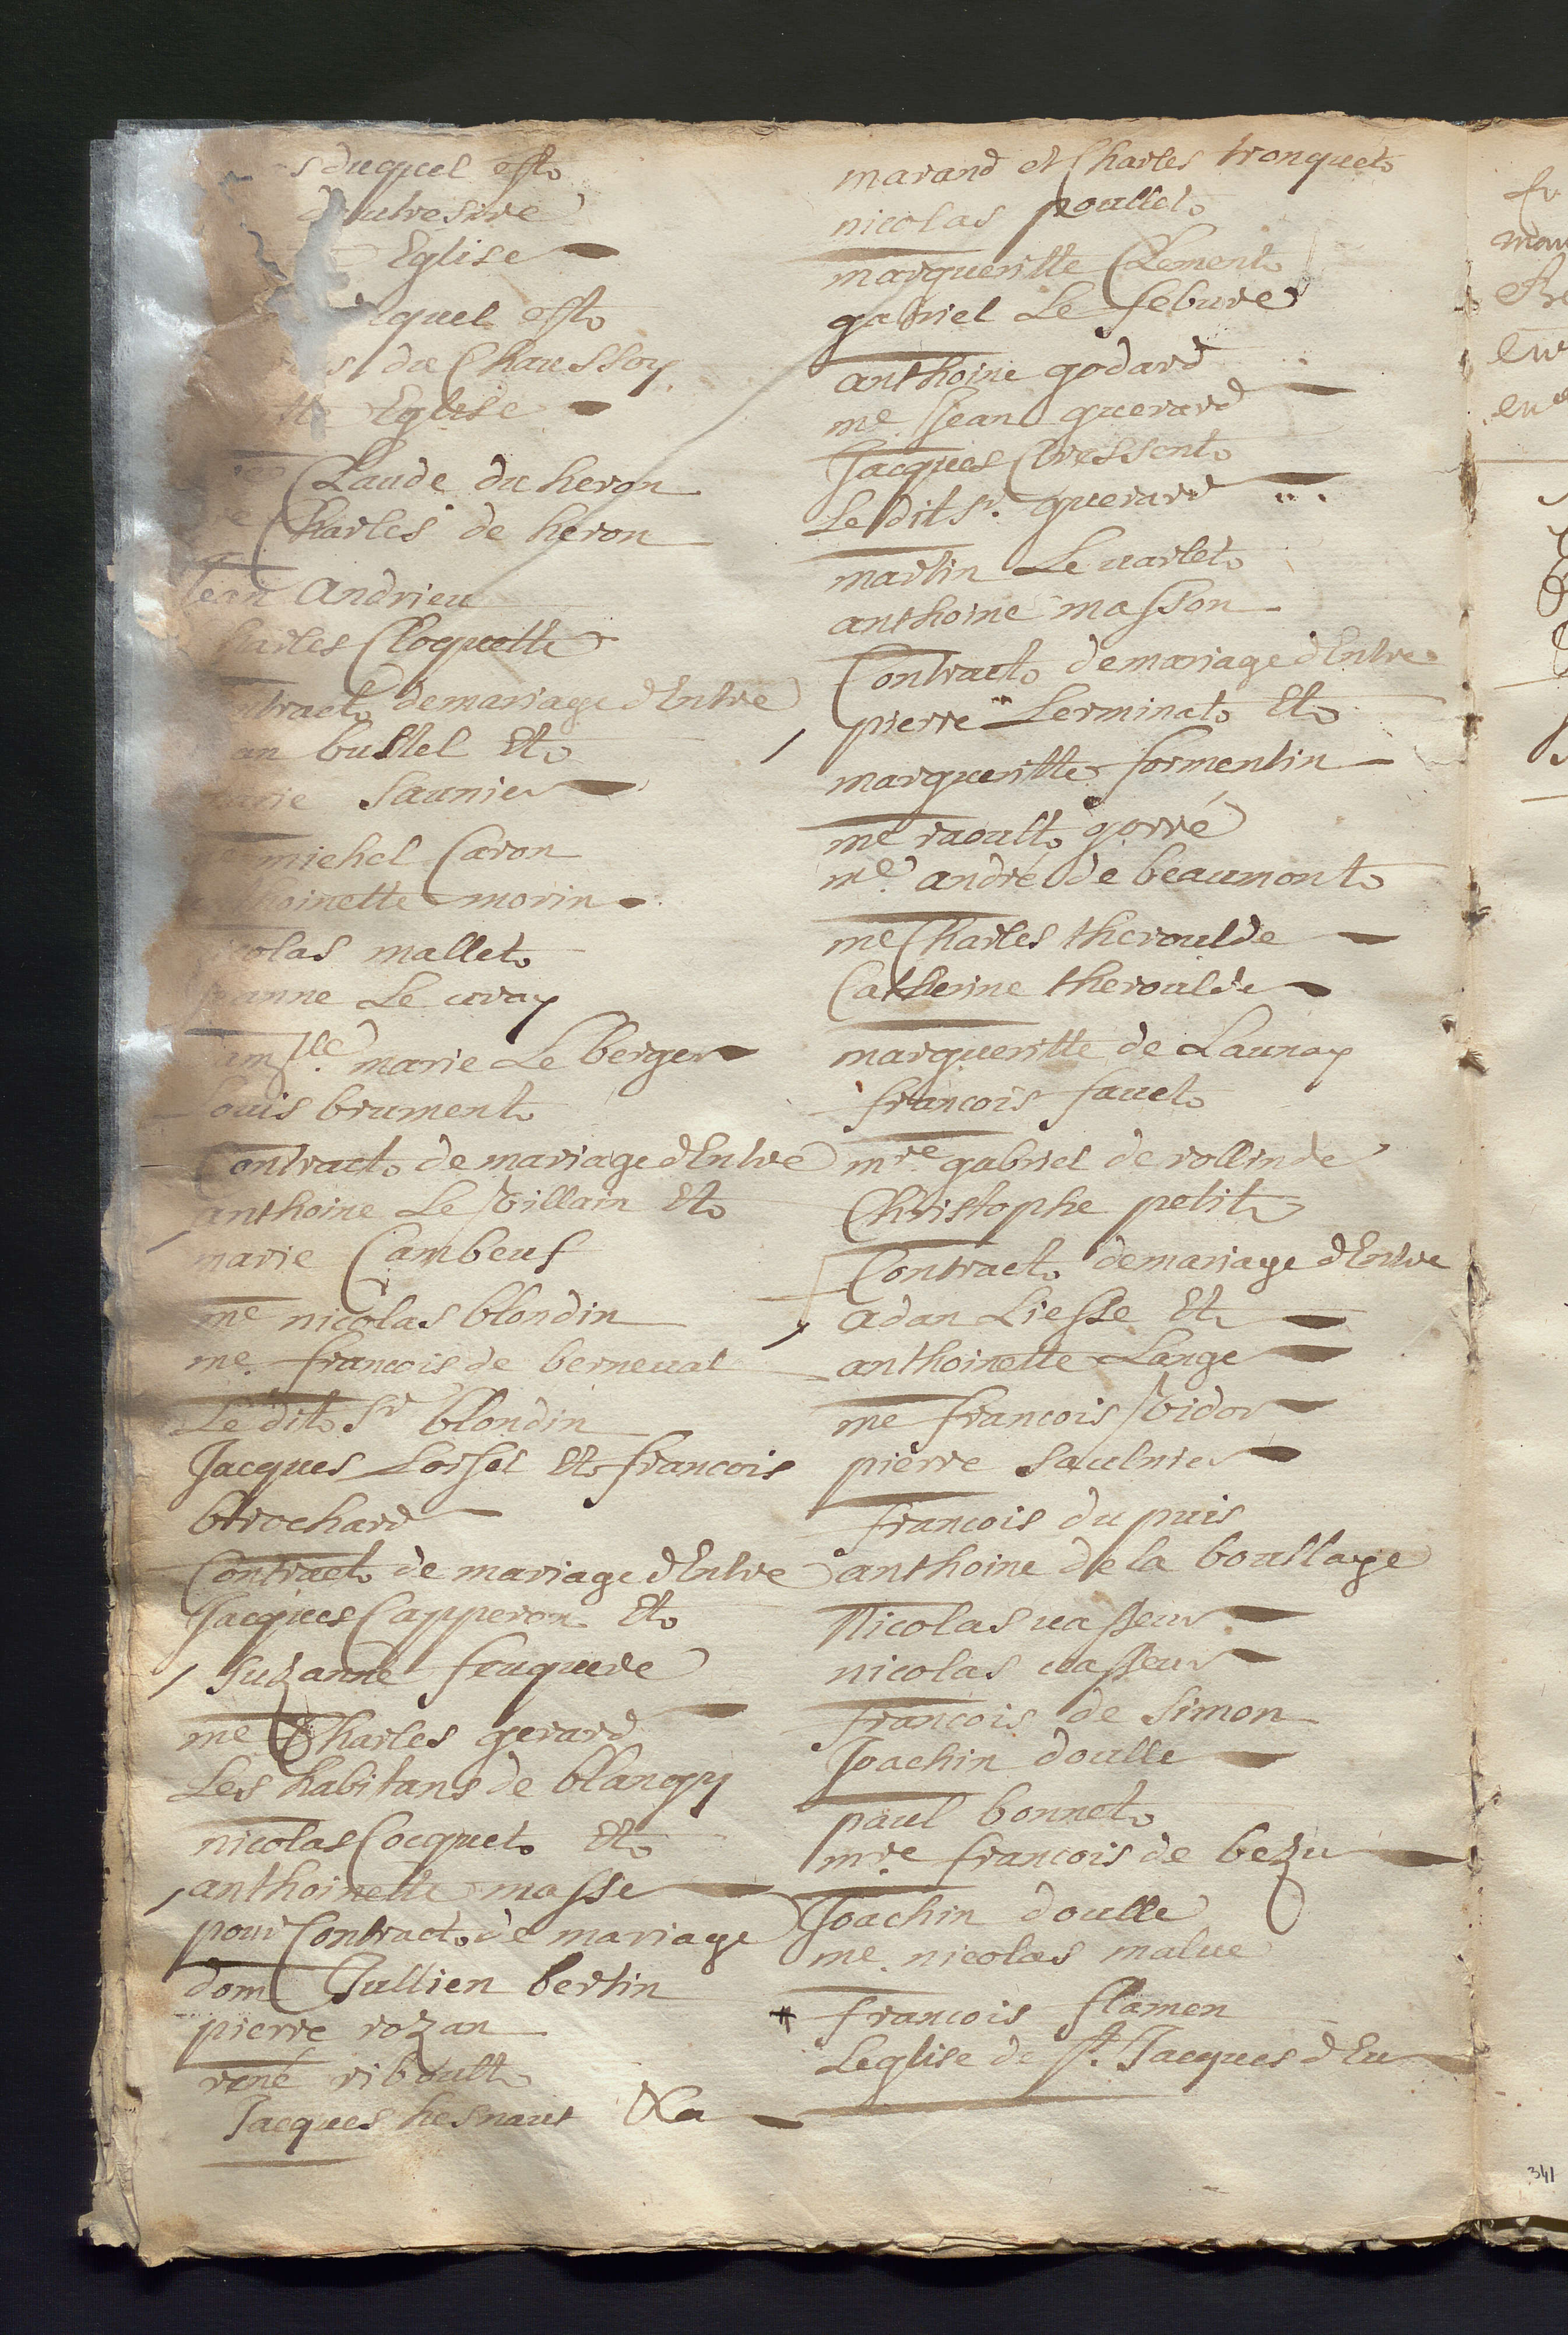 duquel est
Eglise
quel est
du Chaussoy
Eglise
Claude du heron
Charles de heron
Jean Andrieu
Charles Cloquette
contract de mariage d'Entre
bustel Et
Saunier
michel Caron
thoinette morin
nicolas mallet
Jeanne Le
marie Le berger
Louis brument
Contract de mariage d'Entre
anthoine Le Villain Et
marie Cambeuf
me nicolas blondin
me francois de berneual
Le dit Sr blondin
Jacques Loisel Et francois
brochard
Contract de mariage d'Entre
Jacques Capperon Et
Suzanne fruquere
me Charles gerard
Les habitans de blangy
nicolas Cocquet Et
anthoinette masse
pour Contract de mariage
dom Jullien bertin
pierre rozan
rené riboult
Jacques hesnaut &a
marand et Charles tronquet
nicolas poullet
margueritte Clement
gabriel Le febure
anthoine godard
me Jean guerard
Jacques Cressent
Le dit Sr. guerard
martin Le uarlet
anthoine masson
Contract de mariage d'Entre
pierre Lerminat Et
margueritte formentin
me raoult gorré
me. andré de beaumont
me Charles theroulde
Catherine theroulde
margueritte de Launay
francois fauet
mre gabriel de rollinde
Christophe petit
Contract de mariage d'Entre
adan Liesse Et
anthoinette Lange
me francois Vidor
pierre Saulnier
francois du puis
anthoine de la boullaye
Nicolas uasseur
nicolas uasseur
francois de Simon
Joachin doulle
paul bonnet
mre francois de bezu
Joachin doulle
me. nicolas malue
francois flamen
Leglise de St. Jacques d'Eu
341